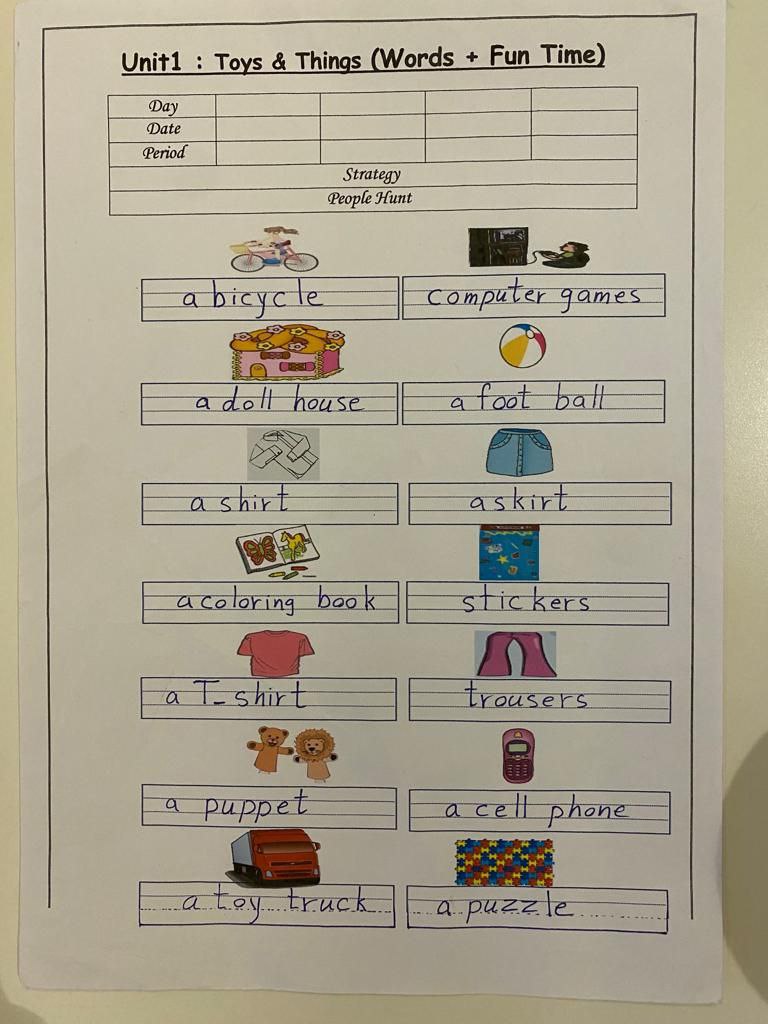 Unit1 : Toys & Things (Words + Fun Time)
Day
Date
Period
Strategy
People Hunt
a bicycle
computer games
a doll house
a foot ball
a shirt
a skirt
a coloring book
stickers
a T_shirt
trousers
a puppet
a cell phone
a toy truck
a puzzle